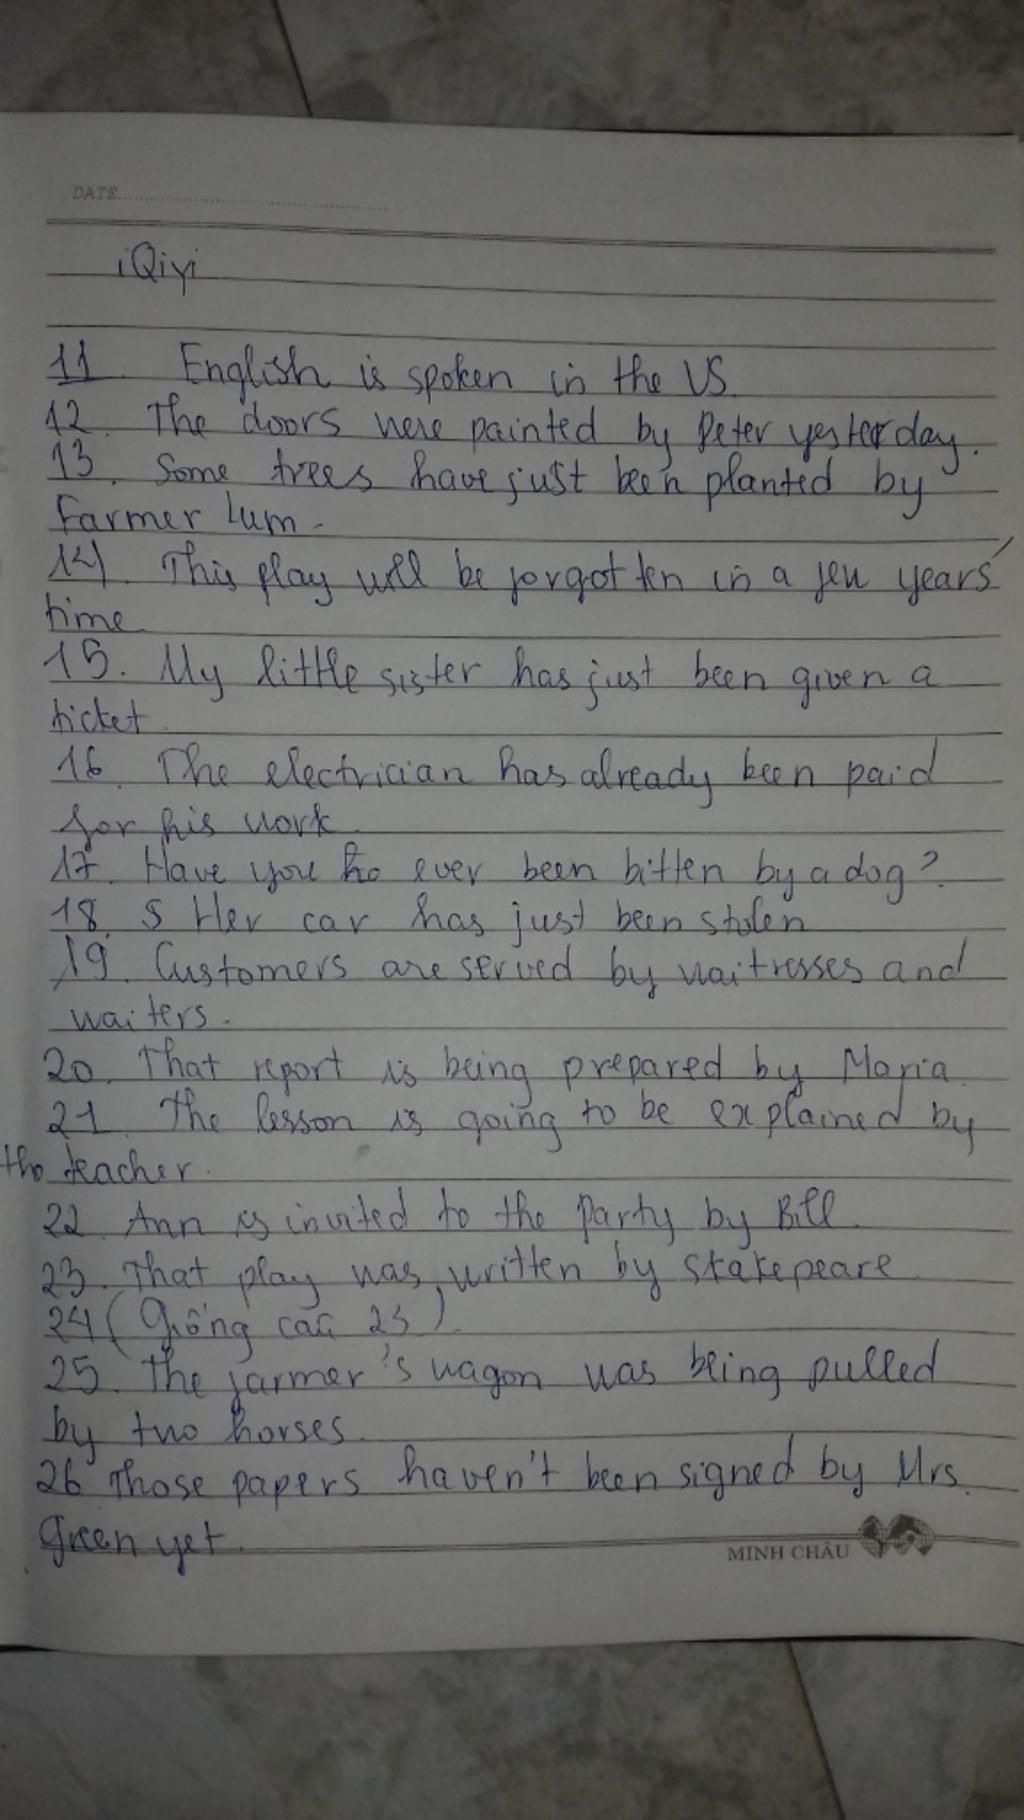 DATE
iQiyi
11. English is spoken in the US.
12. The doors were painted by Peter yesterday.
13. Some trees have just been planted by
Farmer Lum.
14. This play will be forgotten in a few years'
time
15. My little sister has just been given a
ticket
16. The electrician has already been paid
for his work
17. Have you ever been bitten by a dog?
18. S Her car has just been stolen
19. Customers are served by waitresses and
waiters.
20. That report is being prepared by Maria
21. The lesson is going to be explained by
the teacher.
22. Ann is invited to the party by Bill
23. That play was written by Stakepeare
24 (Giống câu 23)
25. The farmer's wagon was being pulled
by two horses.
26 Those papers haven't been signed by Mrs.
Green yet.
MINH CHÂU